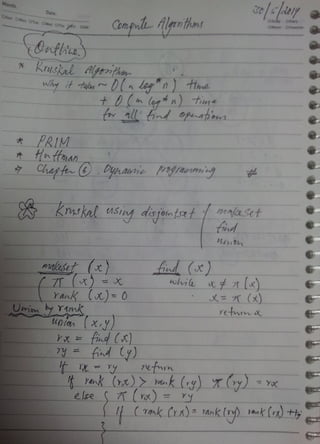 Date:
Computer Algorithms
Outline
* Kruskal Algorithm
why it takes ~ O(n log* n) time
+ O(m log* n) time
for all find operations
* PRIM
* Huffman
Chapter 6 Dynamic Programming #
Kruskal using disjointset { makeset
find
union
makeset (x)
π(x) = x
rank (x) = 0
find (x)
while x ≠ π(x)
x = π(x)
return x
Union by rank
union (x,y)
rx = find (x)
ry = find (y)
if rx = ry return
if rank (rx) > rank (ry) π(ry) = rx
else { π(rx) = ry
if (rank (rx) = rank (ry) rank (rx) ++
}